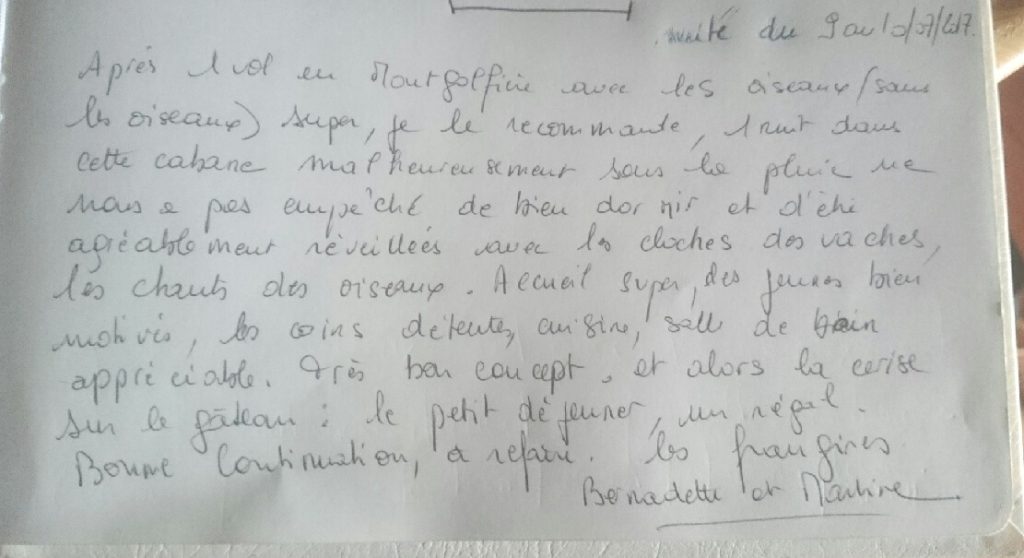 nuité du 9 au 10/07/2017.
Après 1 vol en Montgolfière avec les oiseaux/(sans
les oiseaux) super, je le recommante, 1 nuit dans
cette cabane malheureusement sous la pluie ne
nous a pas empêché de bien dormir et d'été
agréablement réveillées avec les cloches des vaches,
les chants des oiseaux. Accueil super, des jeunes bien
motivés, les coins détente, cuisine, salle de bain
appréciable. Très bon concept, et alors la cerise
sur le gâteau : le petit déjeuner, un régal.
Bonne Continuation, a refaire. les frangines
Bernadette et Martine